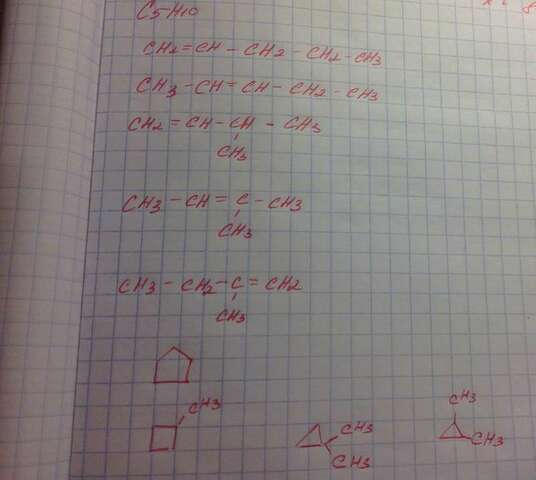 C5H10
CH2=CH-CH2-CH2-CH3
CH3-CH=CH-CH2-CH3
CH2=CH-CH-CH3
CH3
CH3-CH=C-CH3
CH3
CH3-CH2-C=CH2
CH3
CH3
CH3
CH3
CH3
CH3